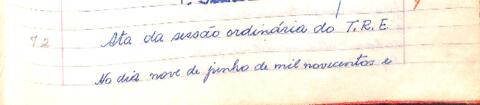 72 Ata da sessão ordinária do T.R.E.
No dia nove de junho de mil novecentos e